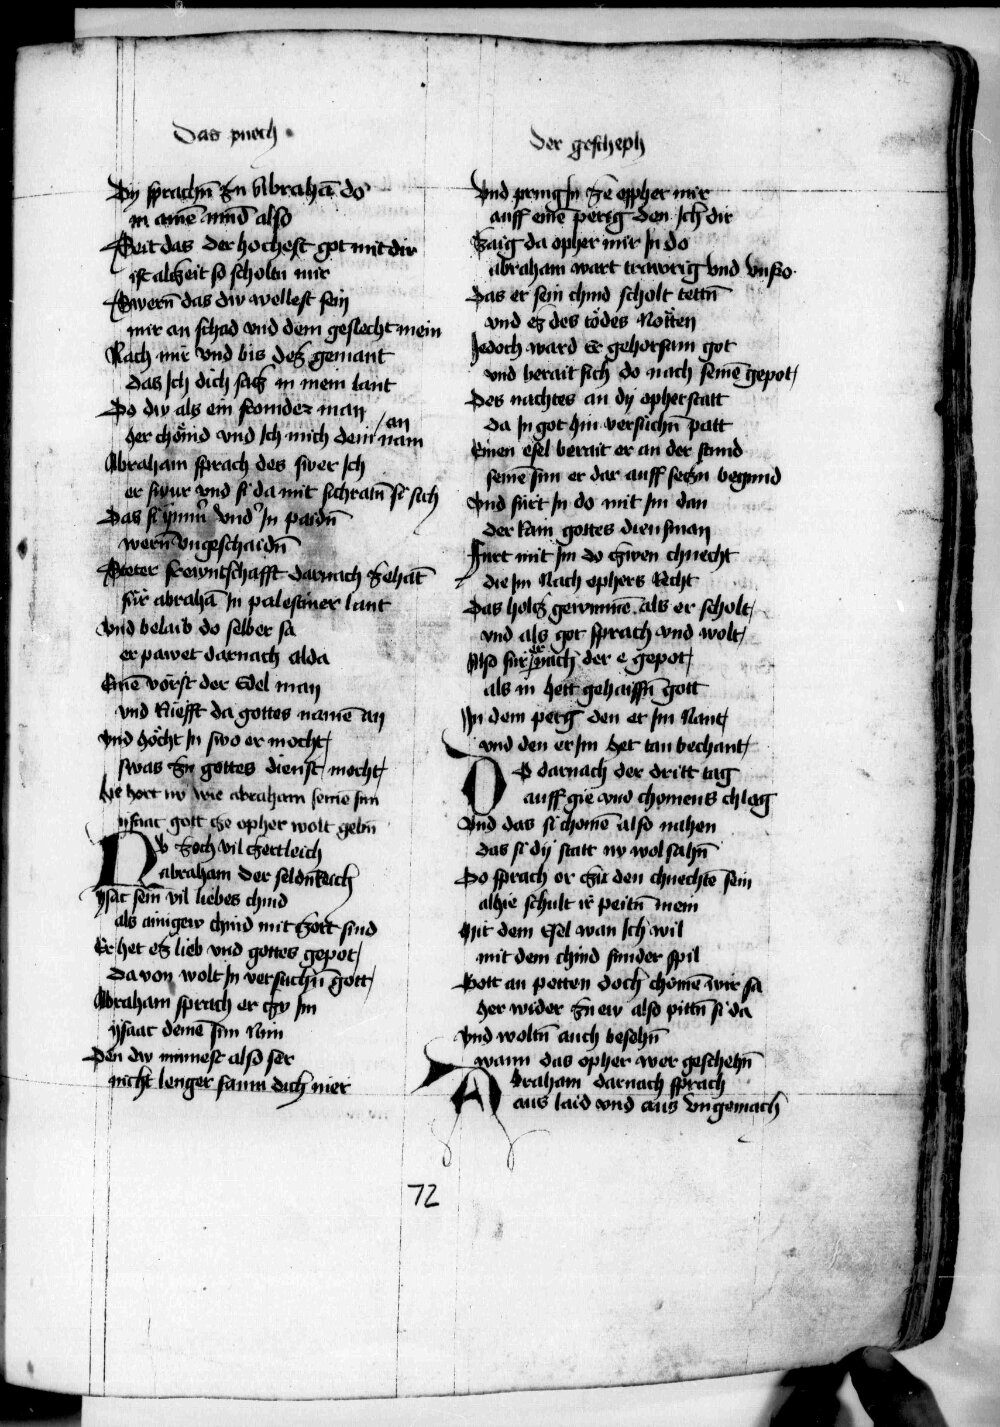 Das puech
Der gescheph
Dy sprachn̄ zu Abrahā do
in ainē mūd also
Seit das der hochest got mit dir
ist alczeit so scholtu mir
Swern̄ das dw wellest sein
mir an schad vnd dem geslecht mein
Nach mir vnd bis dez gemant
das Ich dich sacz in mein lant
Do dw als ein fromder man
her chömd vnd Ich mich dein an nam
Abraham sprach des swer Ich
er swur vnd si da mit sichratn̄ si sich
Das si ymm̄ vnd In paidn̄
wern̄ vngeschaidn̄
Steter frewntschafft darnach zehāt
für abrahā In palestiner lant
Vnd belaib do selber sa
er pawet darnach alda
Einē vörst der Edel man
vnd Riefft da gottes namē an
Vnd höcht In swo er mocht
swas zu gottes dienst mocht
hie hort nv wie abraham seinē sun
ysaac gott cze opher wolt gebn̄
Nv zoch vil czertleich
abraham der seldnreich
ysac sein vil liebes chind
als ainigew chind mit zort sind
Er het ez lieb vnd gottes gepot
Da von wolt In versuchn̄ gott
Abraham sprach er czv Im
ysaac deinē sun Nim
Den dw minnest also ser
nicht lenger saum dich mer
Vnd pring In ze opher mir
auff einē perig den Ich dir
Zaig da opher mir In do
abraham wart trawrig vnd vnfro
Das er sein chind scholt tettn̄
vnd ez des tödes Nötten
Jedoch ward Er gehorsam got
vnd berait sich do nach seinē gepot
Des nachtes an dy opherstatt
da In got hin versichn̄ patt
Einen esel berait er an der stund
seinē sun er dar auff seczn begund
Vnd fürt In do mit Im dan
der kam gottes dienstman
Fürt mit Im do czwen chnecht
die Im Nach ophers Recht
Das holcz gewunnē als er scholt
vnd als got sprach vnd wolt
Also für er nach der e gepot
als in hett gehaissn̄ gott
In dem perg den er Im Nant
vnd den er Im het tan bechant
Do darnach der dritt tag
auff gie vnd chomens chlag
Vnd das si chomē also nahen
das si dy statt nv wol sahn̄
Do sprach er czu den chnechtē sein
alhie schult ir peitn̄ mein
Mit dem Esel wan Ich wil
mit dem chind sunder spil
Gott an petten doch chömē wir sa
her wider zu ew also pittn̄ si da
Vnd woltn̄ auch besehn̄
wann das opher wer geschehn̄
Abraham darnach sprach
aus laid vnd aus vngemach
72